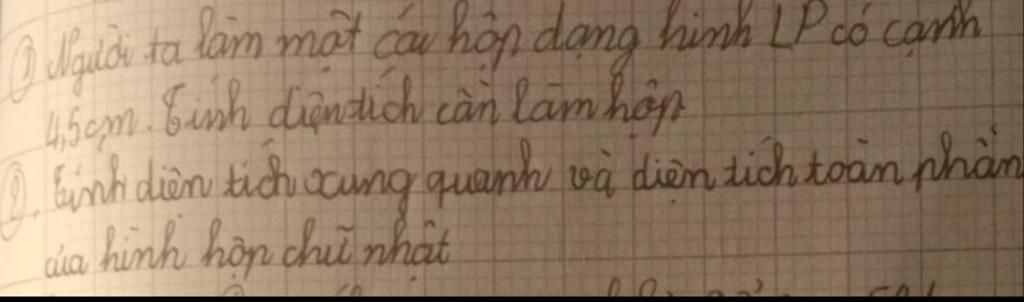 ① Người ta làm một cái hộp dạng hình LP có cạnh
4,5cm. Tính diện tích cần làm hộp
②. Tính diện tích xung quanh và diện tích toàn phần
của hình hộp chữ nhật